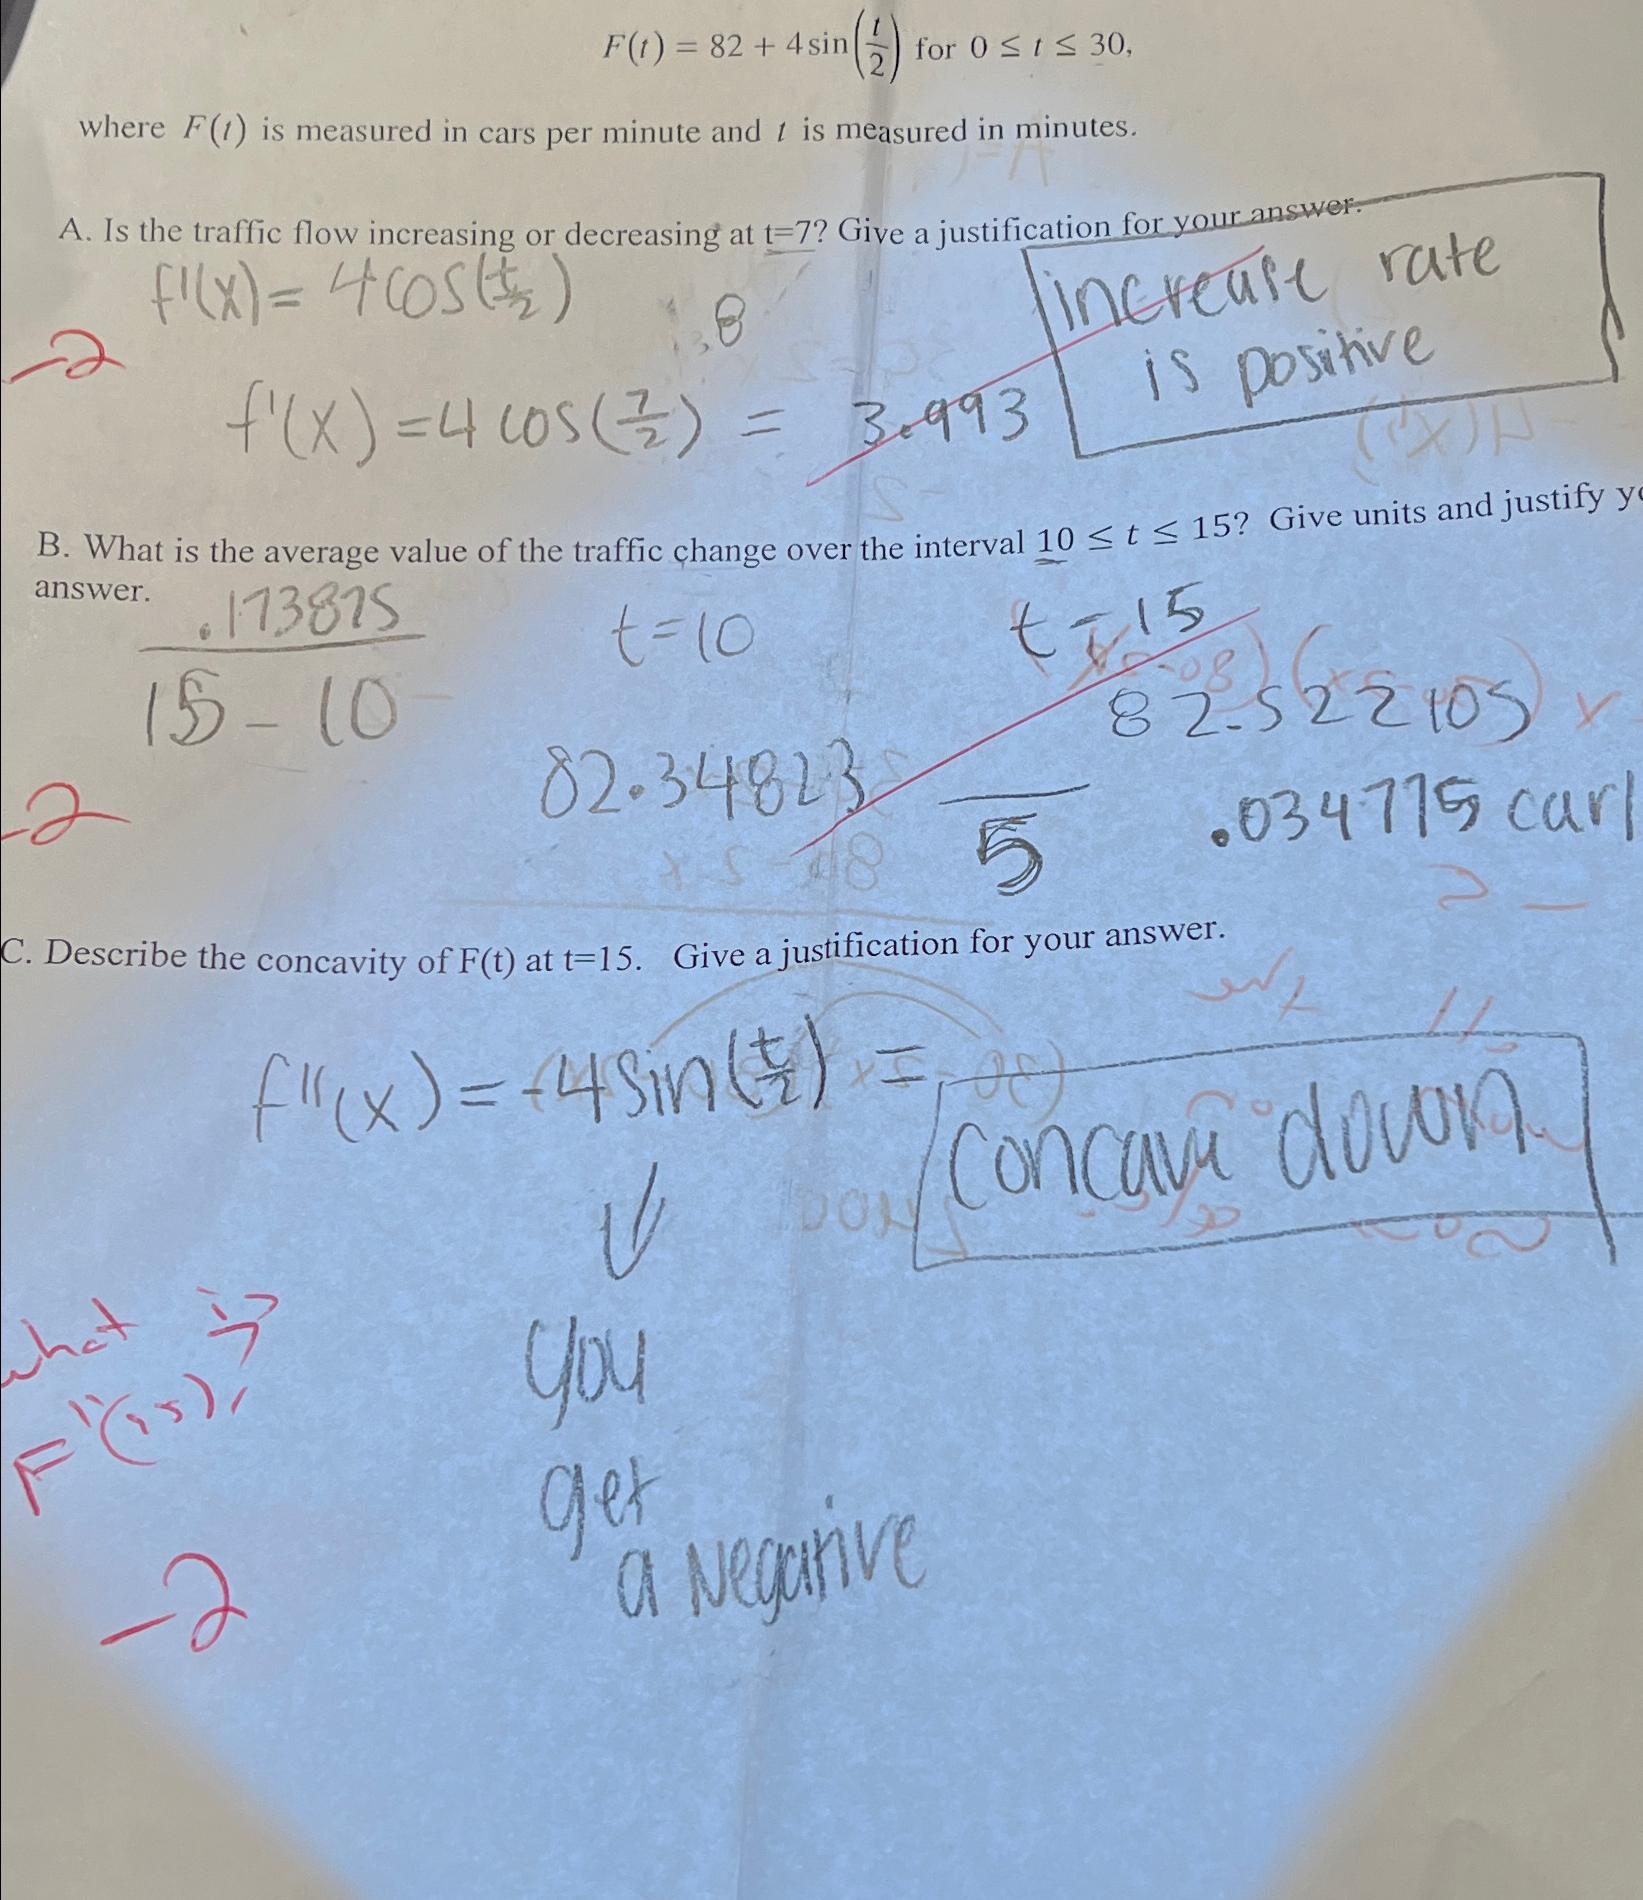 F(t) = 82 + 4 sin(t/2) for 0 ≤ t ≤ 30,
where F(t) is measured in cars per minute and t is measured in minutes.
A. Is the traffic flow increasing or decreasing at t=7? Give a justification for your answer.
f'(x) = 4 cos(t/2)
.8
increase rate
is positive
-2
f'(x) = 4 cos(7/2) = 3.993
B. What is the average value of the traffic change over the interval 10 ≤ t ≤ 15? Give units and justify
answer.
.173875
15 - 10
t=10
t=15
82.522105
82.34823
5
.034775 car
-2
C. Describe the concavity of F(t) at t=15. Give a justification for your answer.
f''(x) = -4 sin(t/2) =
concave down
you
get
a negative
what is
F''(15),
-2